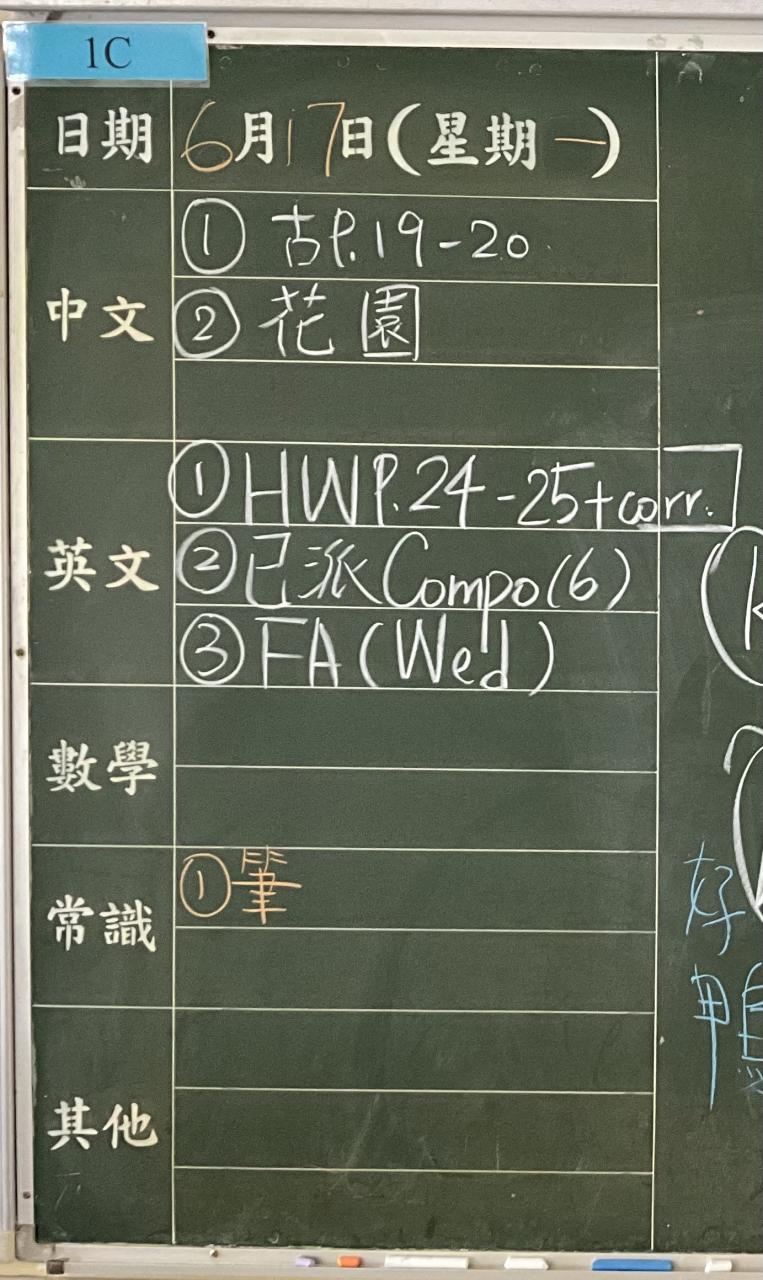 1C
日期 6月17日(星期一)
中文
① 古P.19-20
② 花園
英文
① HWP.24-25+corr.
② 已派Compo(6)
③ FA(Wed)
數學
常識
① 筆
其他
好
鴨